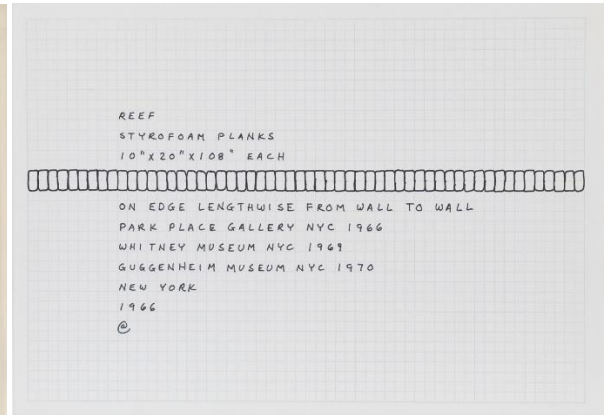 REEF
STYROFOAM PLANKS
10"X20"X108" EACH
ON EDGE LENGTHWISE FROM WALL TO WALL
PARK PLACE GALLERY NYC 1966
WHITNEY MUSEUM NYC 1969
GUGGENHEIM MUSEUM NYC 1970
NEW YORK
1966
@